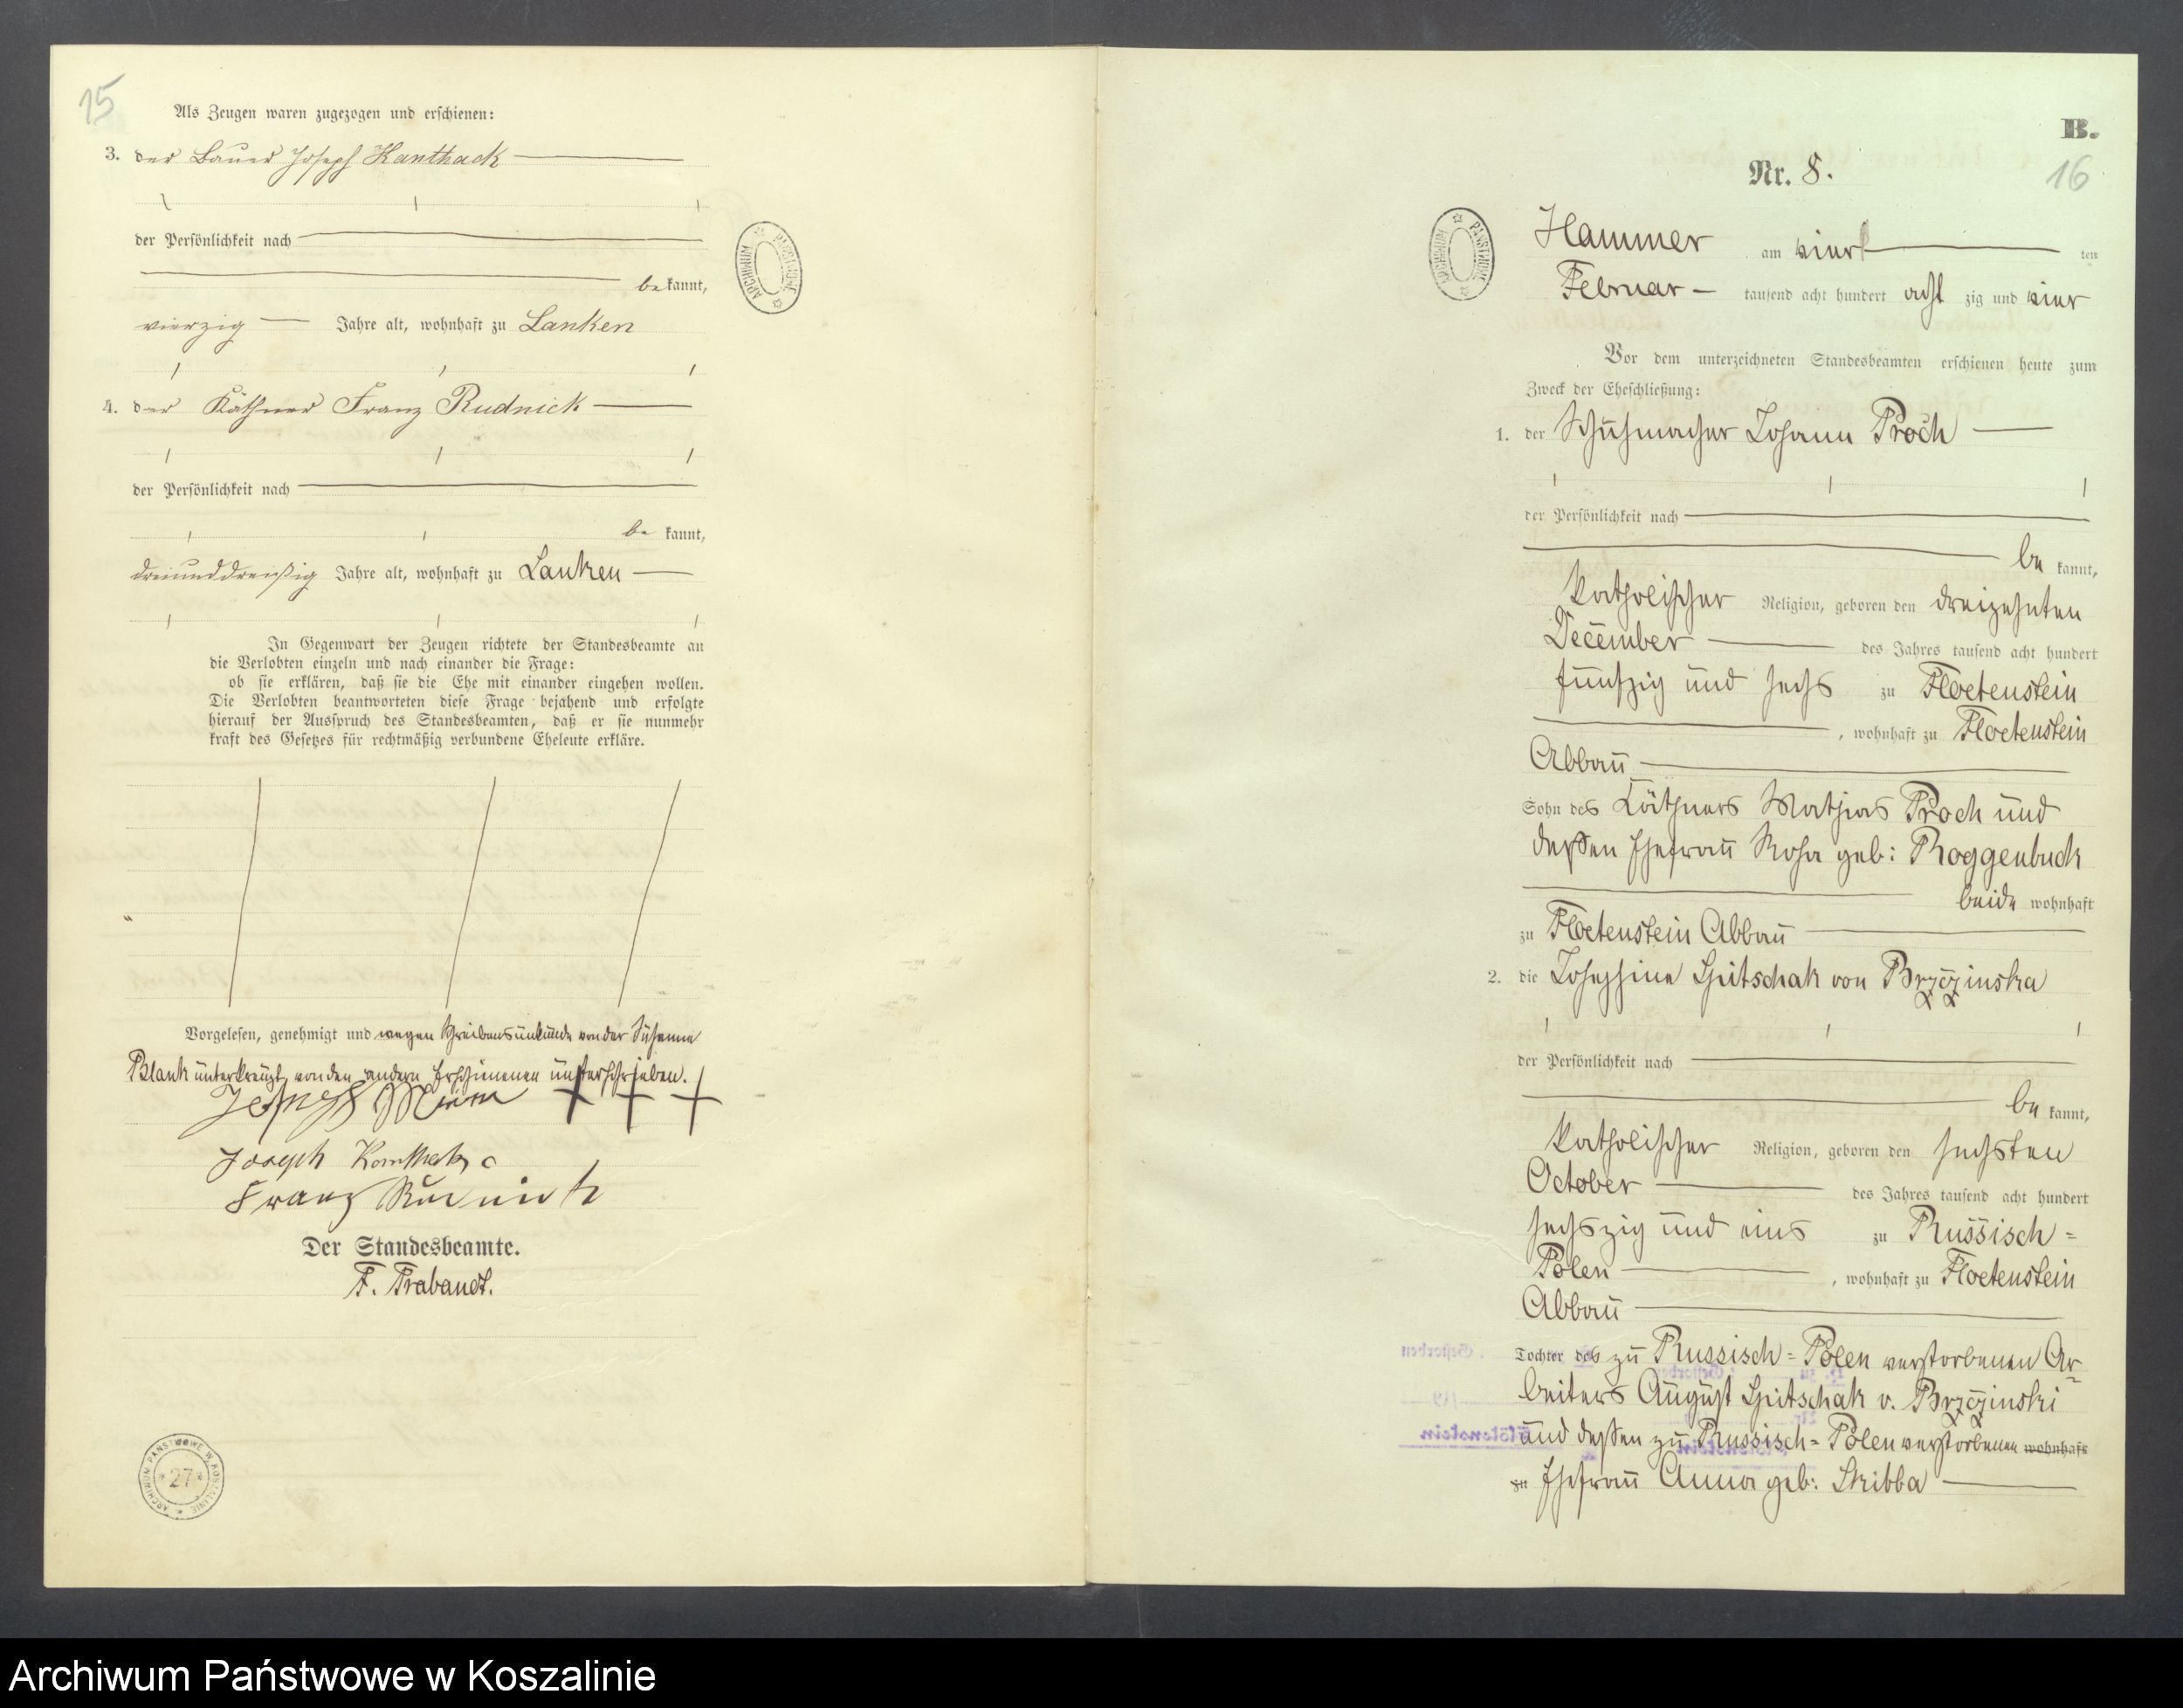 15
Als Zeugen waren zugezogen und erschienen:
3. der Bauer Joseph Kanthack
der Persönlichkeit nach
bekannt,
vierzig Jahre alt, wohnhaft zu Lanken
4. der Käthner Franz Rudnick
der Persönlichkeit nach
be kannt,
dreiunddreißig Jahre alt, wohnhaft zu Lanken
In Gegenwart der Zeugen richtete der Standesbeamte an
die Verlobten einzeln und nach einander die Frage:
ob sie erklären, daß sie die Ehe mit einander eingehen wollen.
Die Verlobten beantworteten diese Frage bejahend und erfolgte
hierauf der Ausspruch des Standesbeamten, daß er sie nunmehr
kraft des Gesetzes für rechtmäßig verbundene Eheleute erkläre.
Vorgelesen, genehmigt und wegen Schreibensunkunde von der Susanna
Blank unterkreuzt, von den andern Erschienenen unterschrieben.
Joseph +++
Joseph Kanthak
Franz Rudnick
Der Standesbeamte.
F. Trabandt.
ARCHIWUM PAŃSTWOWE W KOSZALINIE
* 27 *
ARCHIWUM PAŃSTWOWE
B.
Nr. 8.
16
ARCHIWUM PAŃSTWOWE
Hammer am viert ten
Februar tausend acht hundert acht zig und vier
Vor dem unterzeichneten Standesbeamten erschienen heute zum
Zweck der Eheschließung:
1. der Schuhmacher Johann Proch
der Persönlichkeit nach
be kannt,
katholischer Religion, geboren den dreizehnten
December des Jahres tausend acht hundert
fünfzig und sechs zu Floetenstein
, wohnhaft zu Floetenstein
Abbau
Sohn des Käthners Mathias Proch und
deßen Ehefrau Rosa geb: Roggenbuck
beide wohnhaft
zu Floetenstein Abbau
2. die Josephine Spitschak von Brzezinska
der Persönlichkeit nach
be kannt,
katholischer Religion, geboren den sechsten
October des Jahres tausend acht hundert
sechszig und eins zu Russisch=
Polen , wohnhaft zu Floetenstein
Abbau
Tochter des zu Russisch=Polen verstorbenen Ar=
beiters August Spitschak v. Brzezinski
und deßen zu Russisch=Polen verstorbenen wohnhaft
zu Ehefrau Anna geb: Skibba
Archiwum Państwowe w Koszalinie